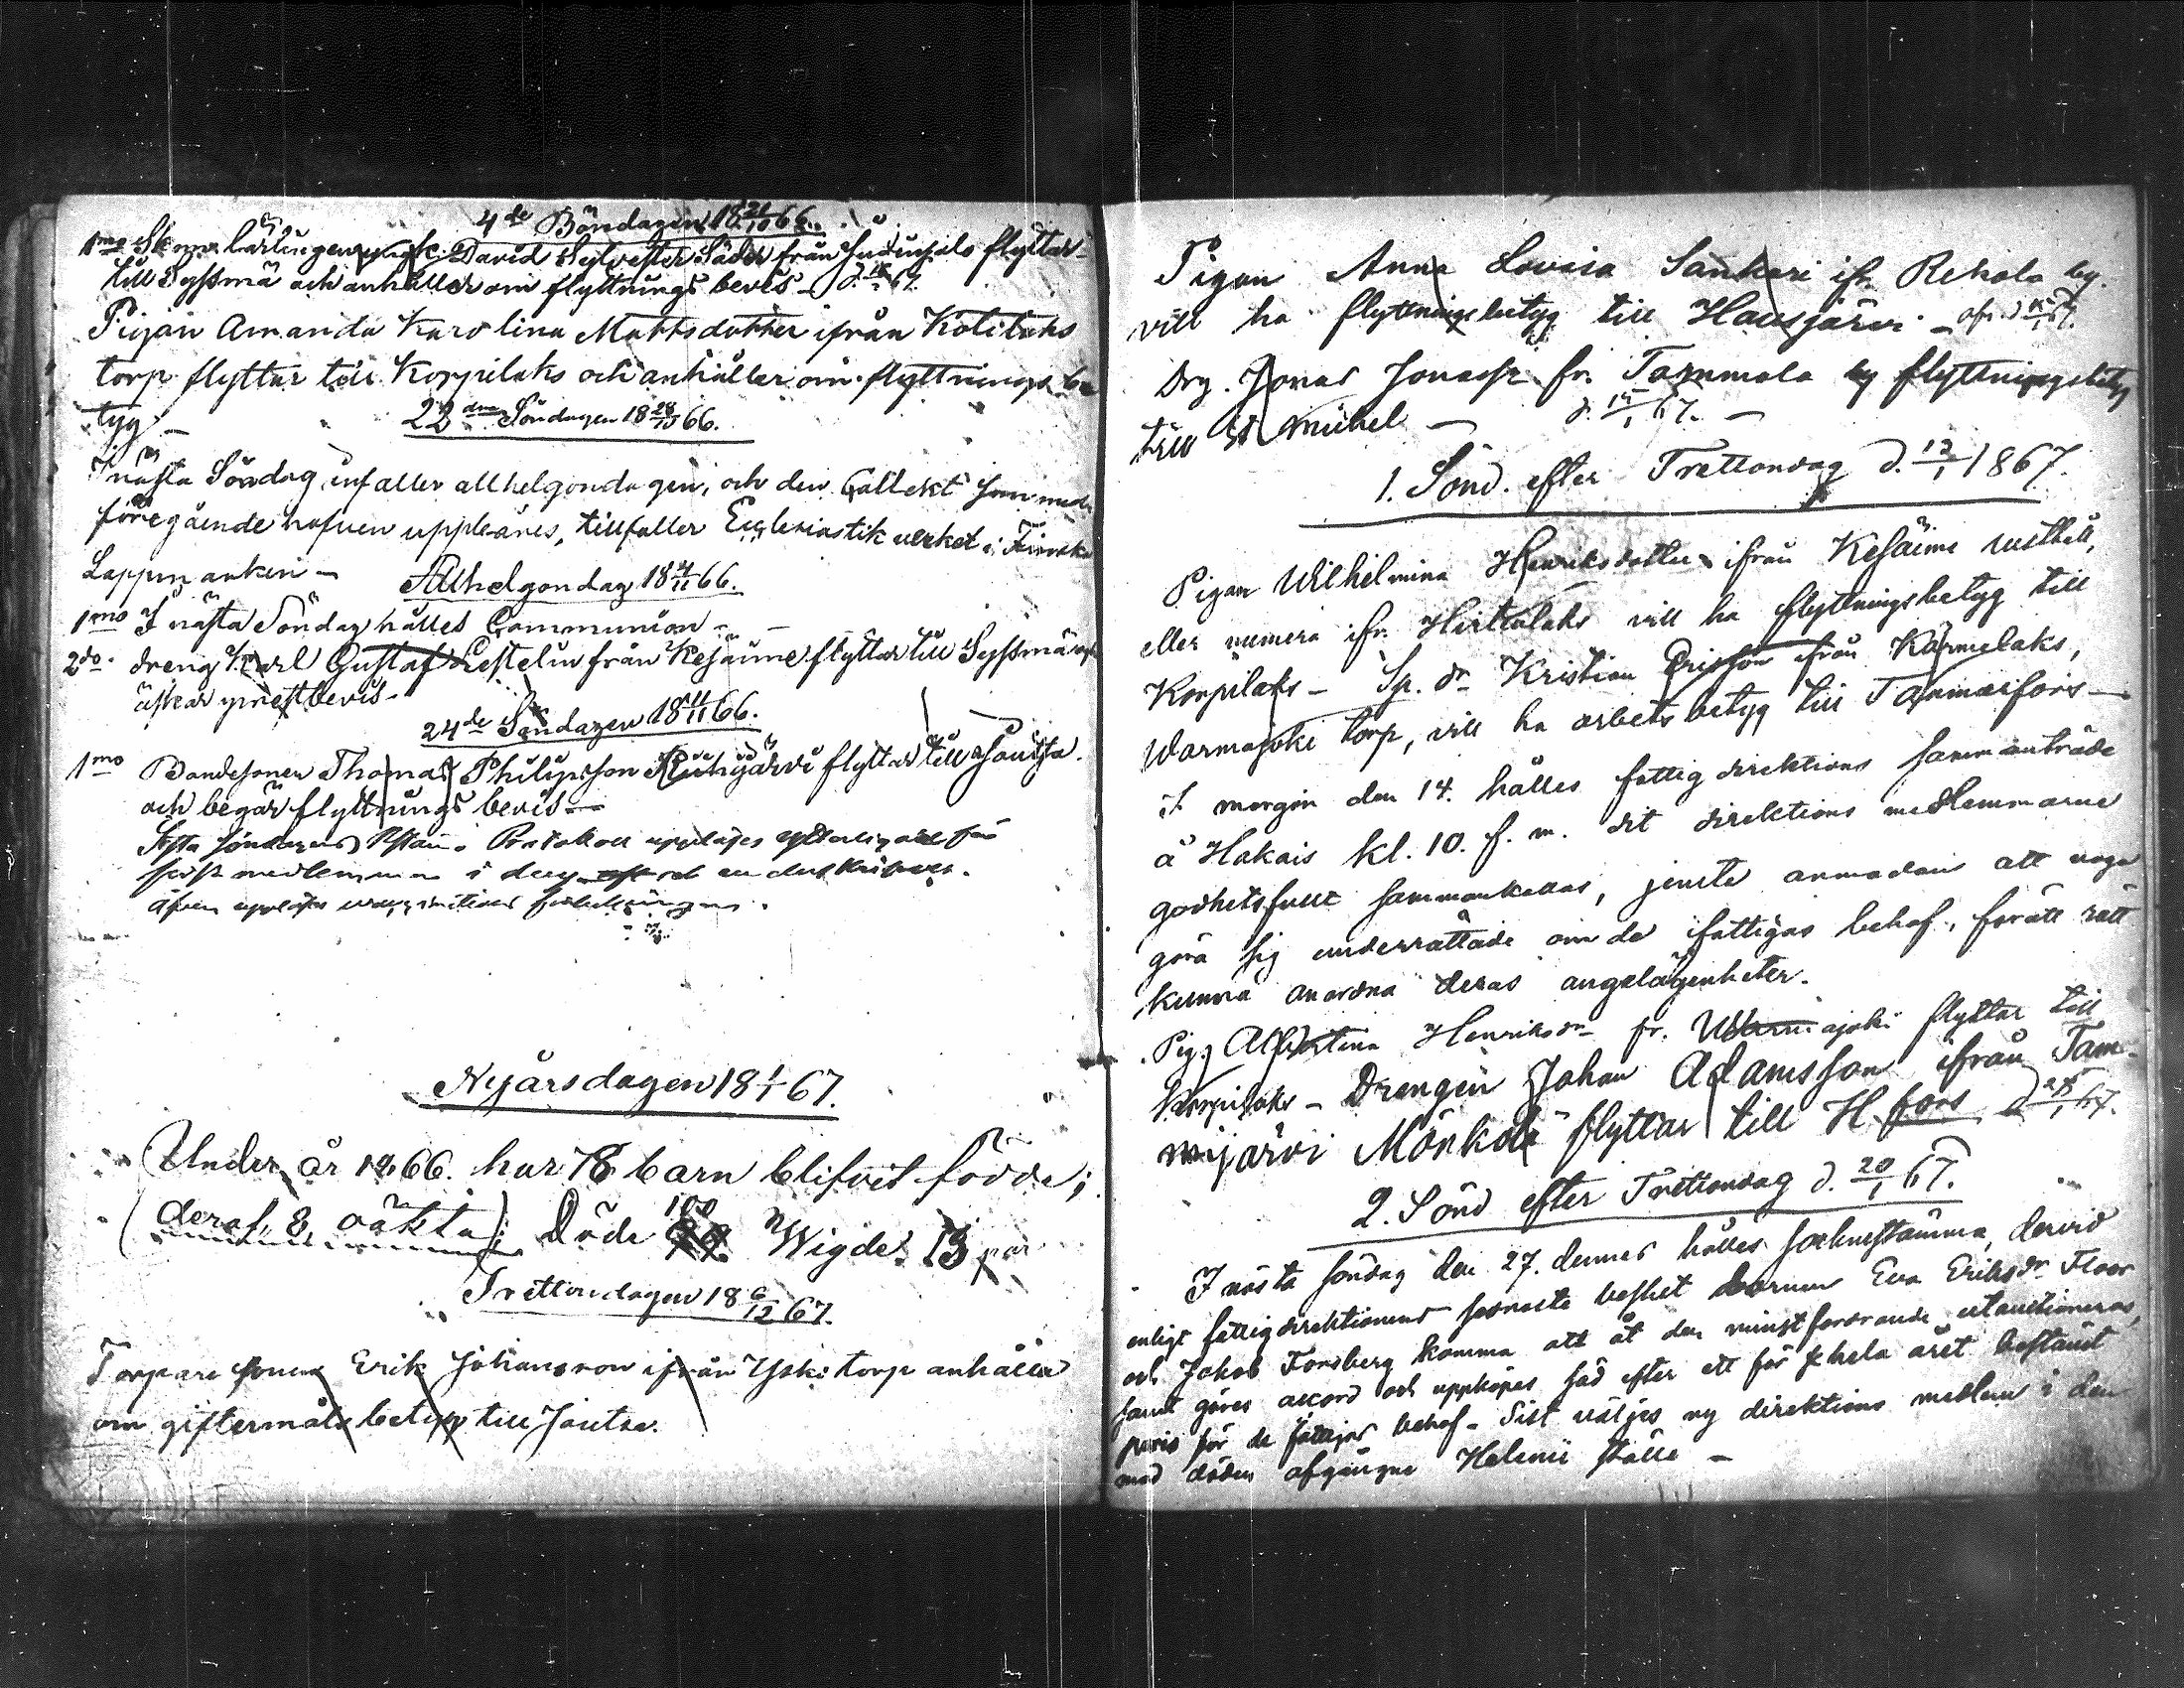 4de Böndagen 18 21/10 66.
1mo Skom. lärlingen David Sylvester Söder från Judinsalo flyttar
till Syssmä och anhåller om flyttnings bevis –
Pigan Amanda Karolina Mattsdotter ifrån Kotilaks
torp flyttar till Korpilaks och anhåller om flyttnings be
tyg –
22dra Söndagen 18 28/10 66.
I nästa Söndag infaller allhelgondagen, och den Collekt som med
föregående hafven upplyses, tillfaller Ecclesiastik verket i Finska
Lappmarken –
Allhelgondag 18 4/11 66.
1mo I nästa Söndag hålles Communion –
2do. dreng Karl Gustaf Lestelin från Kesäime flyttar till Syssmä
äskar prestbevis –
24de Söndagen 18 11/11 66.
1mo Bondesonen Thomas Philipsson Ruihjärvi flyttar till Joutsa.
och begär flyttnings bevis –
Sista söndagens Protokoll upplästes
medlemmar i
äfven upplästes
Nyårsdagen 18 1/1 67.
Under år 1866. har 78 barn blifvit födde;
(deraf 8 oäkta); Döde 100 Wigde 13 par
Trettondagen 18 6/12 67.
Torpare sonen Erik Johansson ifrån Yski torp anhåller
om giftermåls betyg till Joutsa.
Pigan Anna Lovisa Sankari ifr. Rekola by.
vill ha flyttningsbetyg till Hausjärvi –
Drg. Jonas Jonass. fr. Tammola by flyttningsbetyg
till St Michel – d. 15/1 67. –
1. Sönd. efter Trettondag d. 13/1 1867.
Pigan Wilhelmina Henriksdotter ifrån Kesäime rusthåll,
eller numera ifr. Hirttalaks vill ha flyttningsbetyg till
Korpilaks – Sp. dr. Kristian Ericsson ifrån Kärmelaks,
Warmajoki torp, vill ha arbetsbetyg till Tammerfors –
I morgon den 14. hålles fattigdirektions sammanträde
å Hakais kl. 10. f. m. dit direktions medlemmarne
godhetsfullt sammankallas, jemte anmodan att noga
göra sig underrättade om de fattigas behof, föratt rätt
kunna anordna deras angelägenheter.
Pig. Albertina Henriksdr fr. Warmajoki flyttar till
Korpilaks – Drengen Johan Adamsson ifrån Tam-
mijärvi Mönkölä flyttar till H.fors d. 28/1 67.
2. Sönd efter Trettondag d. 20/1 67.
I nästa söndag den 27. dennes hålles sockenstämma, dervid
enligt fattigdirektionens senaste beslut barnen Eva Eriksdr Floor
och Jakob Forsberg komma att åt den minstfordrande utauctioneras,
samt göres accord och uppköpes säd efter ett för hela året bestämt
pris för de fattiges behof – Sist väljes ny direktions medlem i den
med döden afgångne Helenii ställe –